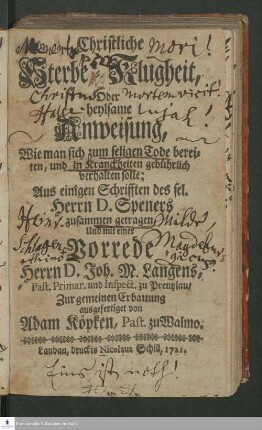 Memento mori!
Christliche
Sterbe-Klugheit,
Christus mortem vicit.
Oder
heylsame
Anweisung,
Wie man sich zum seligen Tode berei-
ten, und in Kranckheiten gebührlich
verhalten solle;
Aus einigen Schrifften des sel.
Herrn D. Speners
zusammen getragen,
Und mit einer
Vorrede
Herrn D. Joh. M. Langens,
Past. Primar. und Inspect. zu Prenzlau,
Zur gemeinen Erbauung
ausgefertiget von
Adam Köpken, Past. zu Walmo.
Laudau, druckts Nicolaus Schill, 1721.
Eins ist noth!